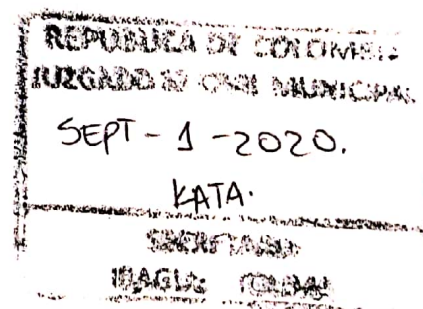 REPUBLICA DE COLOMBIA
JUZGADO CIVIL MUNICIPAL
SEPT - 1 - 2020.
KATA.
SECRETARIA
IBAGUE TOLIMA